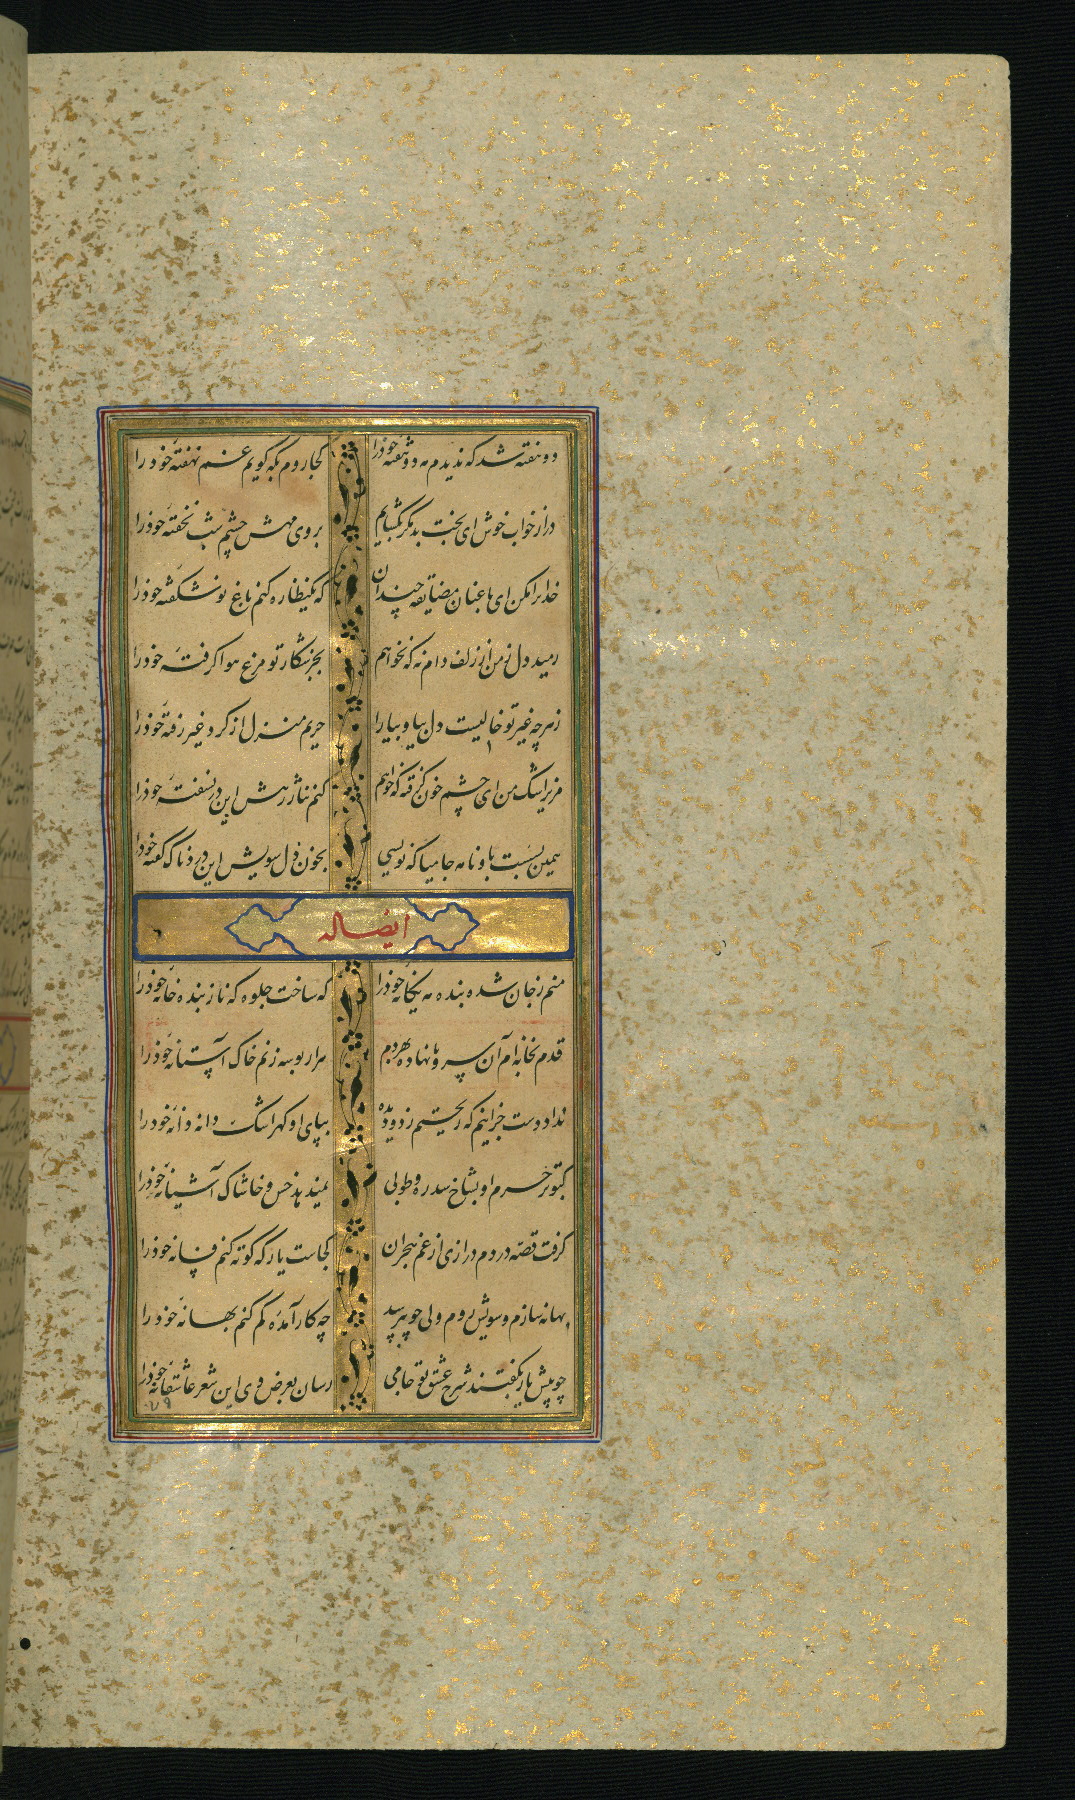 دو هفته شد که ندیدم مه دو هفته خود را کجا روم بکه گویم غم نهفته خود را
در از خواب خوش ای بخت بد مگر بگشایم بروی مهش چشم شب نخفته خود را
خدایرا مکن ای باغبان مضایقه چندان که یک نظاره کنم باغ نو شکفته خود را
رمید دل ز من از زلف دام نه که نخواهم بجز شکار تو مرغ هوا گرفته خود را
زهر چه غیر تو خالیست دل بیا و بیارا حریم منزل از گرد غیر رفته خود را
مریز اشک من ای چشم خون گرفته که خواهم کنم نثار رهش این در نسفته خود را
همین بسست باو نامه جامیا که نویسی بخون دل سویش این درد ناک گفته خود را
ایضا له
منم ز جان شده بنده مه یگانه خود را که ساخت جلوه که ناز بنده خانه خود را
قدم بخانه ام آن سرو نا نهاده بهر دم هزار بوسه زنم خاک آستانه خود را
نداد دست جز اینم که ریختم ز دو دیده بپای او گهر اشک دانه دانه خود را
کبوتر حرم او بشاخ سدره و طوبی نمیدهد خس و خاشاک آشیانه خود را
گرفت قصه دردم درازی از غم هجران کجاست یار که کوته کنم فسانه خود را
بهانه سازم و سویش روم ولی چو بپرسد چه کار آمده گم کنم بهانه خود را
چو پیش یار نگفتند شرح عشق تو جامی رسان بعرض وی این شعر عاشقانه خود را